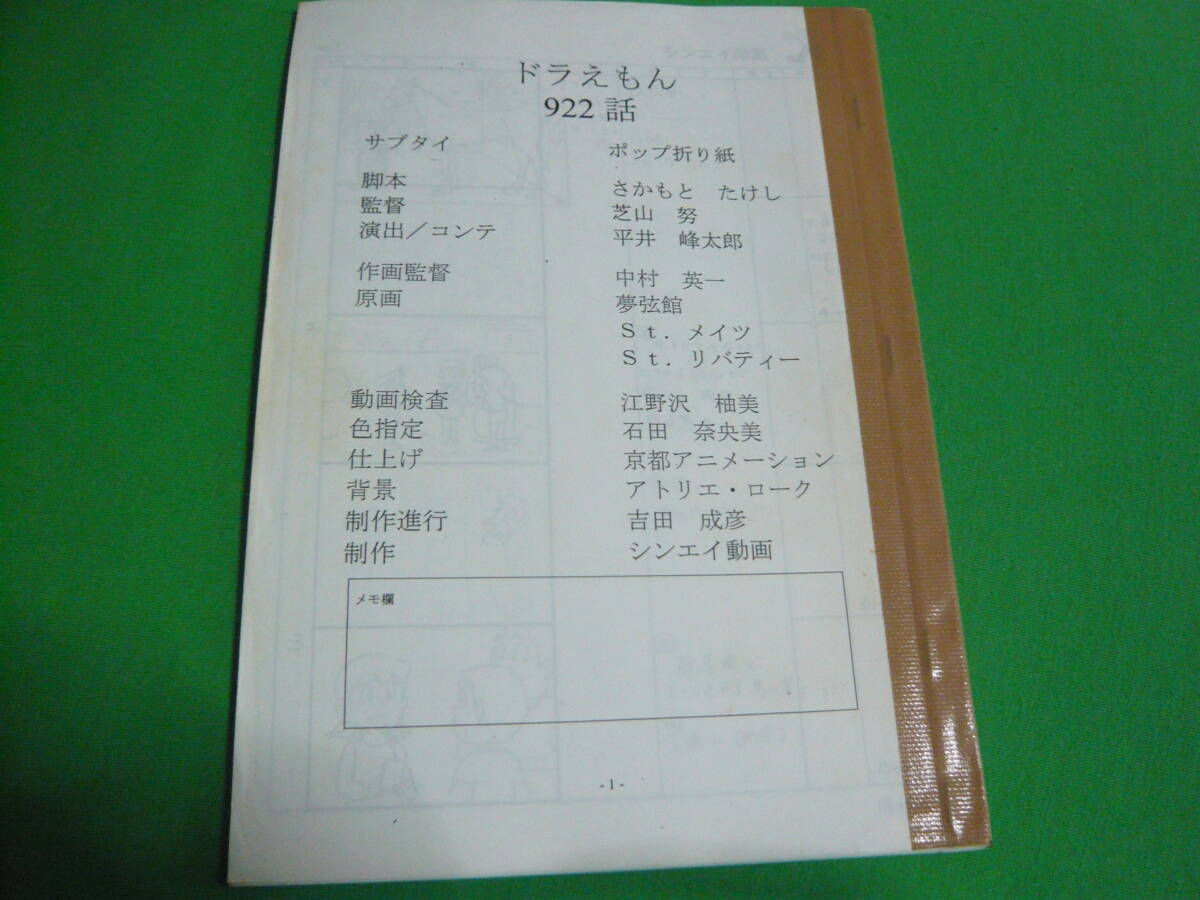 ドラえもん
922 話
サブタイ ポップ折り紙
脚本 さかもと たけし
監督 芝山 努
演出／コンテ 平井 峰太郎
作画監督 中村 英一
原画 夢弦館
Ｓｔ．メイツ
Ｓｔ．リバティー
動画検査 江野沢 柚美
色指定 石田 奈央美
仕上げ 京都アニメーション
背景 アトリエ・ローク
制作進行 吉田 成彦
制作 シンエイ動画
メモ欄
- 1 -